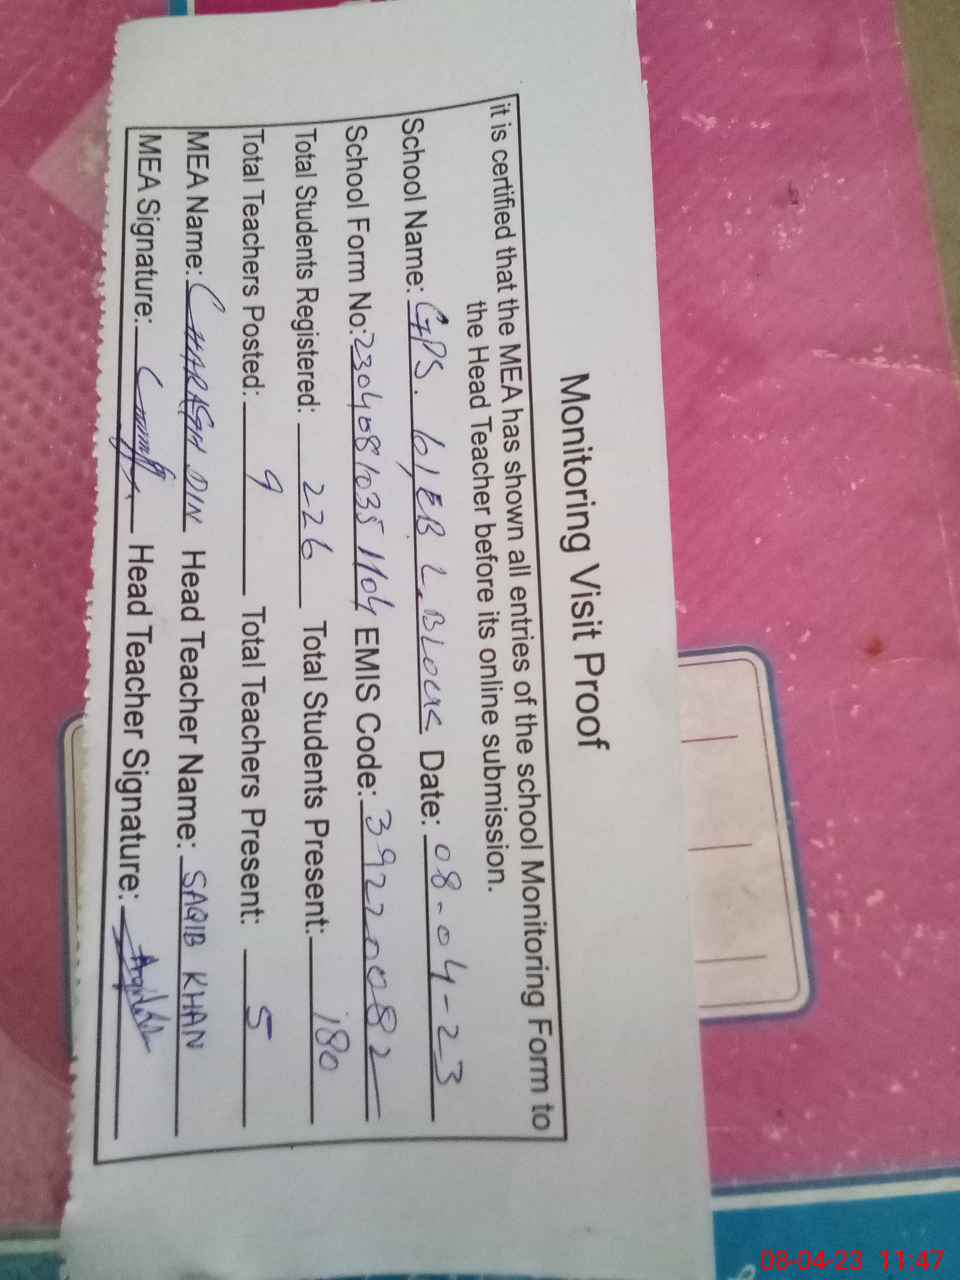 Monitoring Visit Proof
it is certified that the MEA has shown all entries of the school Monitoring Form to
the Head Teacher before its online submission.
School Name: GPS. 61EB L. BLOCK Date: 08-04-23
School Form No: 2304081035 1104 EMIS Code: 39220082
Total Students Registered: 226 Total Students Present: 180
Total Teachers Posted: 9 Total Teachers Present: 5
MEA Name: CHARAGH DIN Head Teacher Name: SAQIB KHAN
MEA Signature: Head Teacher Signature:
08-04-23 11:47